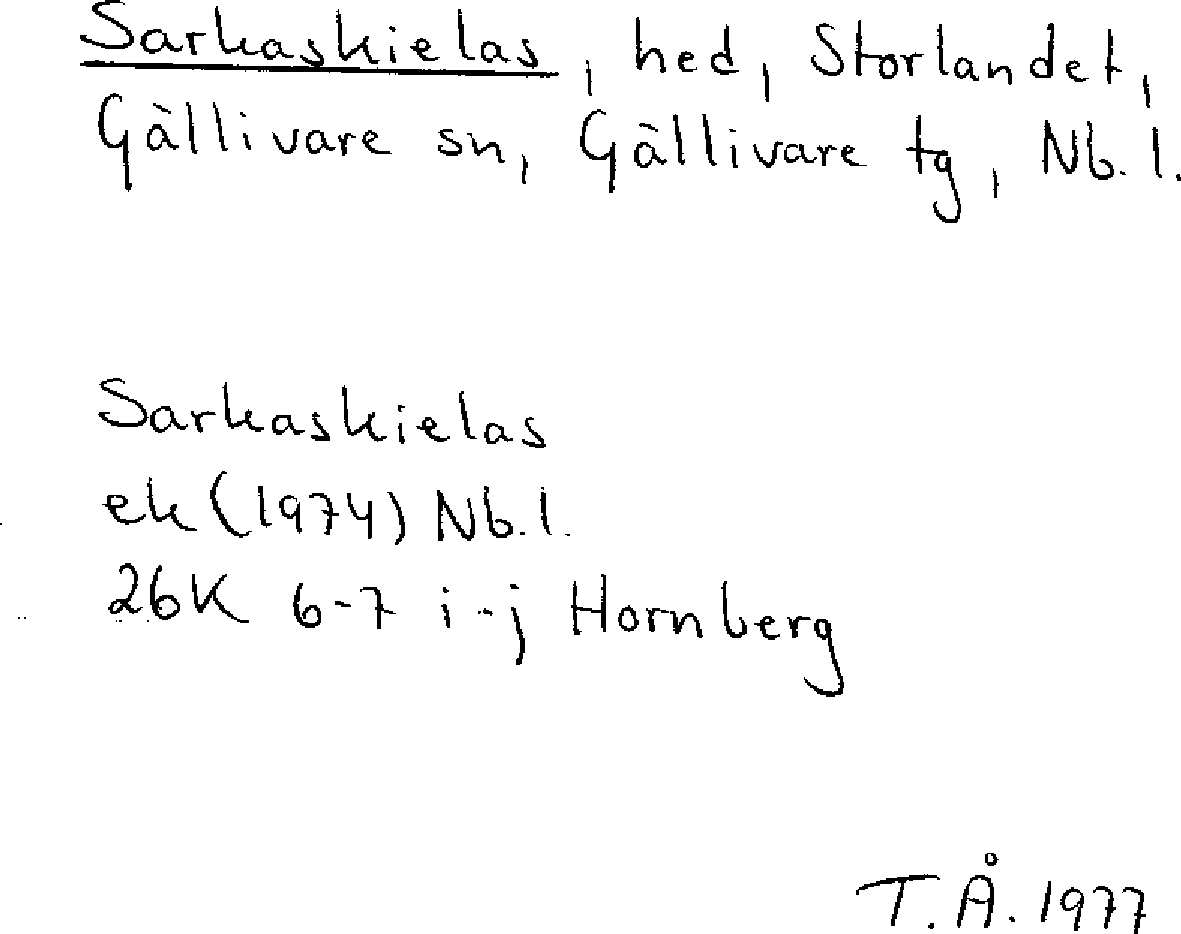 Sarkaskielas, hed, Storlandet,
Gällivare sn, Gällivare tg, Nb. l.
Sarkaskielas
ek (1974) Nb. l.
26K 6-7 i-j Hornberg
T.Å. 1977